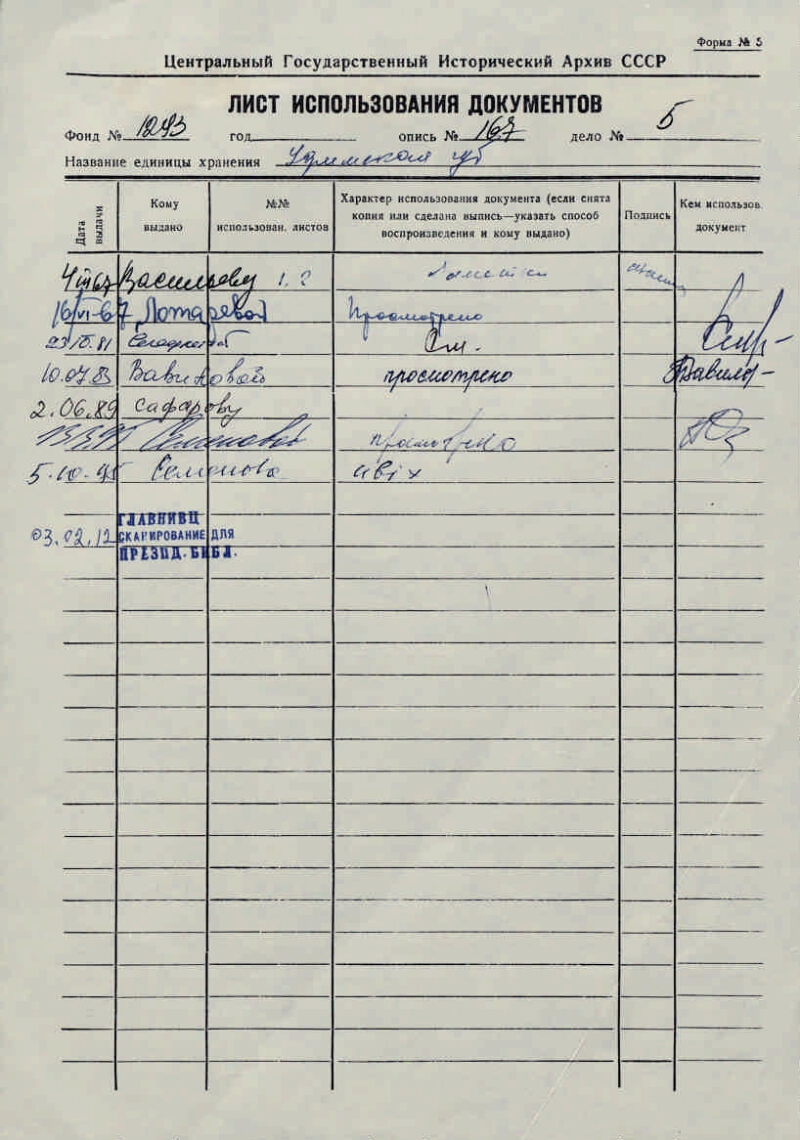 Форма № 5
Центральный Государственный Исторический Архив СССР
ЛИСТ ИСПОЛЬЗОВАНИЯ ДОКУМЕНТОВ
Фонд № 1293 год опись № 167 дело № 5
Название единицы хранения
Дата выдачи
Кому выдано
№№ использован. листов
Характер использования документа (если снята копия или сделана выпись—указать способ воспроизведения и кому выдано)
Подпись
Кем использов. документ
Васильеву
16/VI-67 Просмотрено
См.
10.07.83 Вавиловой просмотрено Вавило-
2.06.89 Сафарову
просмотрено
5.10.95 Семенова
03.02.12 ГЛАВНИВЦ
СКАНИРОВАНИЕ ДЛЯ
ПРЕЗИД. БИБЛ.